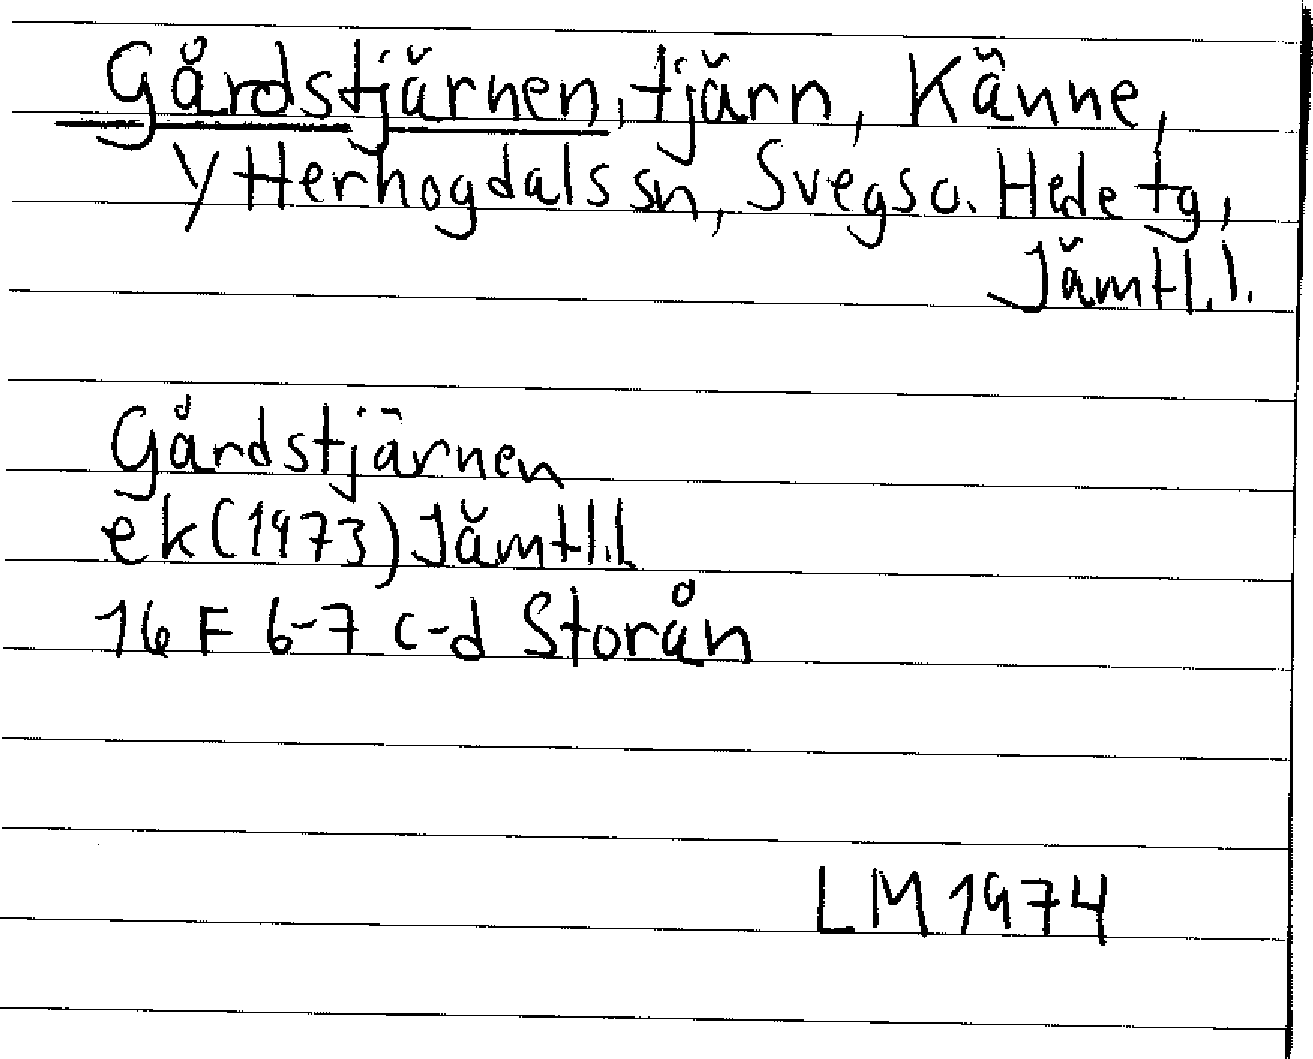 Gårdstjärnen, tjärn, Känne,
Ytterhogdals sn, Svegs o. Hede tg,
Jämtl. l.
Gårdstjärnen
ek (1973) Jämtl.l
16 F 6-7 c-d Storån
LM 1974